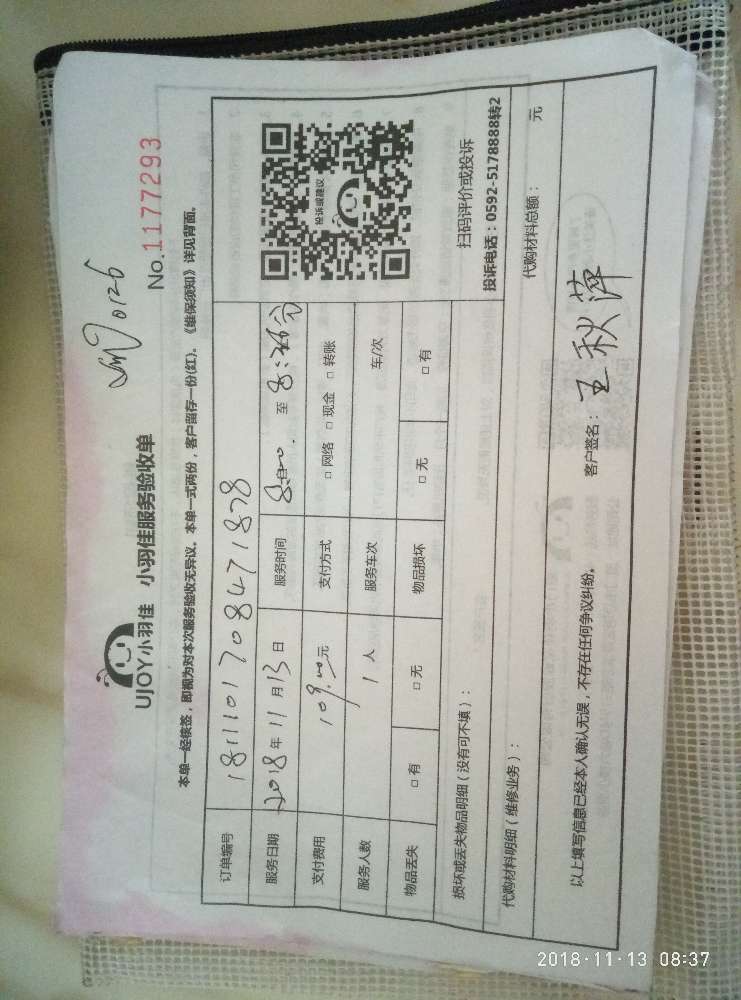 UJOY小羽佳 小羽佳服务验收单
0126
No.1177293
本单一经核签，即视为对本次服务验收无异议。本单一式两份，客户留存一份(红)。《维保须知》详见背面。
订单编号 181110170847 1878
服务日期 2018年11月13日 服务时间 至
支付费用 109.00元 支付方式 □ 网络 □ 现金 □ 转账
服务人数 1 人 服务车次 车/次
物品丢失 □ 有 □ 无 物品损坏 □ 无 □ 有
投诉或建议
扫码评价或投诉
投诉电话：0592-5178888转2
损坏或丢失物品明细（没有可不填）：
代购材料明细（维修业务）： 代购材料总额： 元
以上填写信息已经本人确认无误，不存在任何争议纠纷。 客户签名： 王秋萍
2018·11·13 08:37